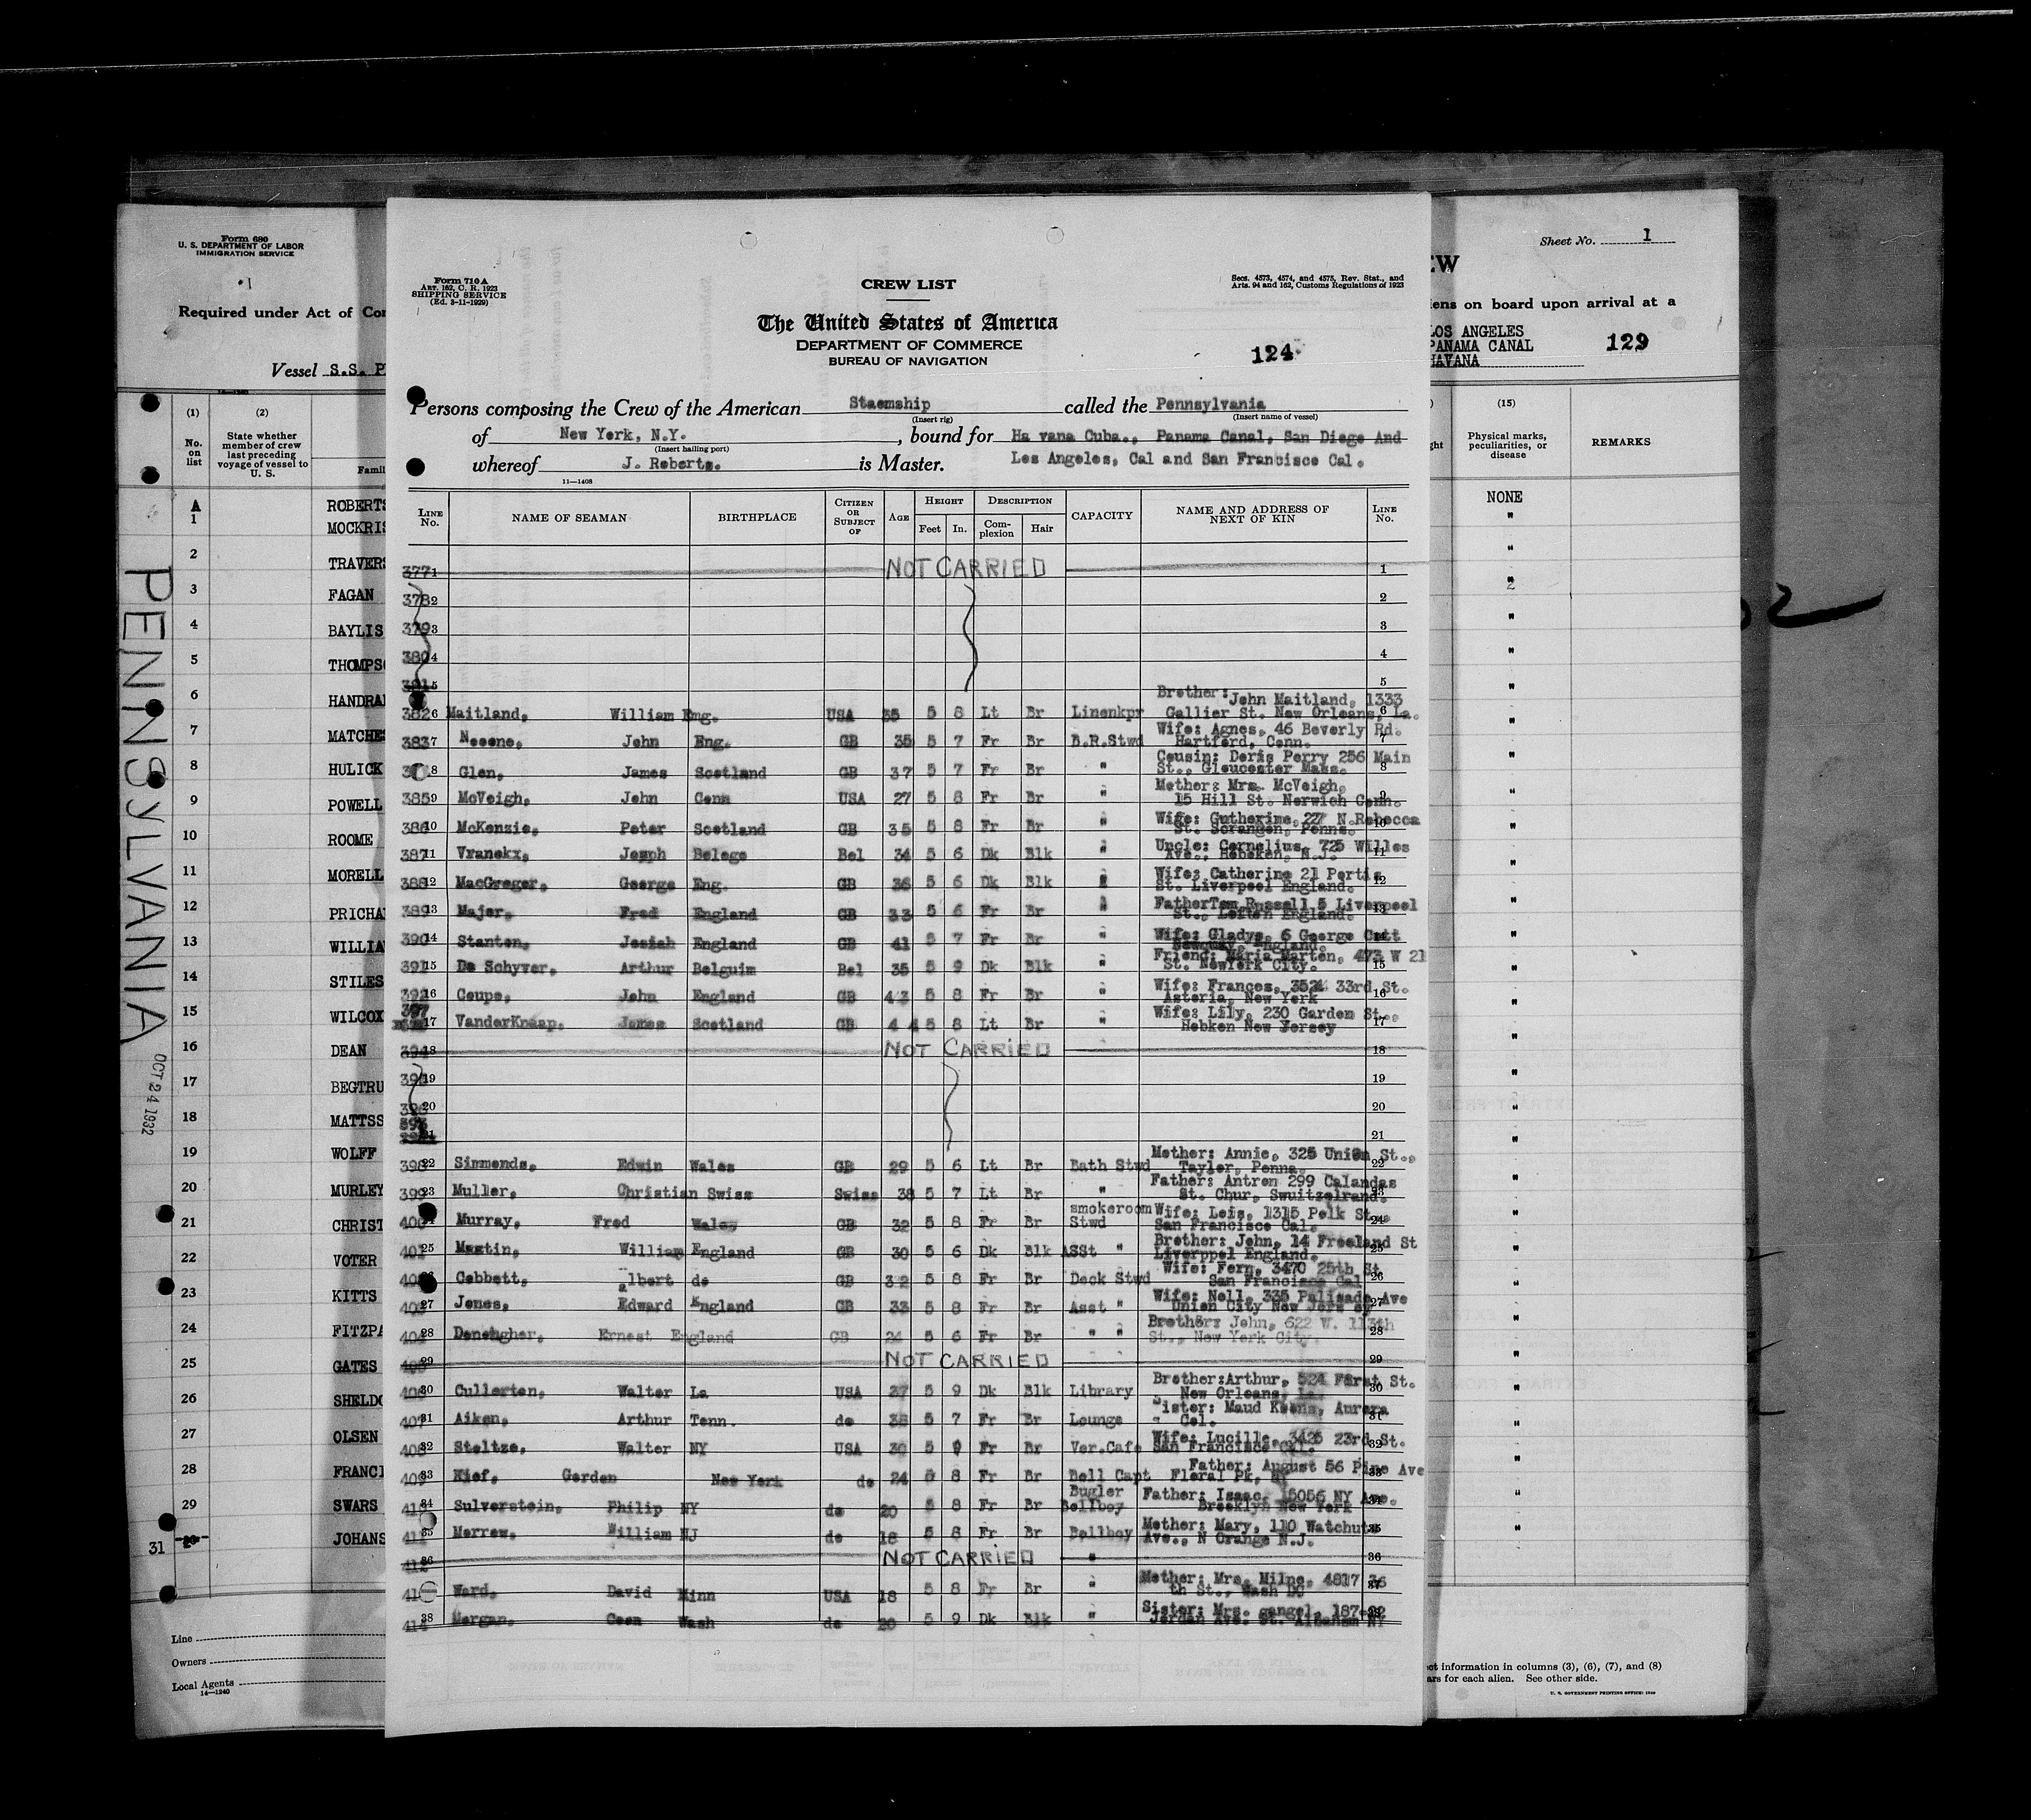 Form 680
U. S. DEPARTMENT OF LABOR
IMMIGRATION SERVICE
Required under Act of
Vessel S.S.
(1)
No. on list
(2)
State whether member of crew last preceding voyage of vessel to U. S.
A ROBERTS
1 MOCKRIS
2 TRAVERS
3 FAGAN
4 BAYLIS
5 THOMPS
6 HANDRA
7 MATCHES
8 HULICK
9 POWELL
10 ROOME
11 MORELL
12 PRICHA
13 WILLIA
14 STILES
15 WILCOX
16 DEAN
17 BEGTRU
18 MATTSS
19 WOLFF
20 MURLEY
21 CHRIST
22 VOTER
23 KITTS
24 FITZPA
25 GATES
26 SHELDO
27 OLSEN
28 FRANCI
29 SWARS
31 JOHANS
PENNSYLVANIA
OCT 24 1932
Line
Owners
Local Agents
14—1240
Form 710 A
ART. 162, C. R. 1923
SHIPPING SERVICE
(Ed. 3-11-1929)
CREW LIST
Secs. 4573, 4574, and 4575, Rev. Stat., and
Arts. 94 and 162, Customs Regulations of 1923
The United States of America
DEPARTMENT OF COMMERCE
BUREAU OF NAVIGATION
124
Persons composing the Crew of the American Staemship called the Pennsylvania
(Insert rig) (Insert name of vessel)
of New York, N.Y. , bound for Ha vana Cuba., Panama Canal, San Diego And
(Insert hailing port)
whereof J. Roberts. is Master. Los Angeles, Cal and San Francisco Cal.
11—1408
LINE No. NAME OF SEAMAN BIRTHPLACE CITIZEN OR SUBJECT OF AGE HEIGHT Feet In. DESCRIPTION Complexion Hair CAPACITY NAME AND ADDRESS OF NEXT OF KIN LINE No.
377 1 NOT CARRIED 1
378 2 2
379 3 3
380 4 4
381 5 5
Brother: John Maitland, 1333
382 6 Maitland, William Eng. USA 35 5 8 Lt Br Linenkpr Gallier St. New Orleans, La. 6
Wife: Agnes, 46 Beverly Rd.
383 7 Neeene, John Eng. GB 35 5 7 Fr Br B.R.Stwd Hartford, Conn. 7
Cousin: Doris Perry 256 Main
8 Glen, James Scotland GB 37 5 7 Fr Br " St., Gloucester Mass. 8
Mother: Mrs. McVeigh,
385 9 McVeigh, John Conn USA 27 5 8 Fr Br " 15 Hill St. Norwich Conn. 9
Wife: Gutherine, 227 N.Rebecca
386 10 McKenzie, Peter Scotland GB 35 5 8 Fr Br " St. Scrangon, Penna. 10
Uncle: Cornelius, 725 Willes
387 11 Vranekx, Jesph Belege Bel 34 5 6 Dk Blk " Ave., Hoboken, N.J. 11
Wife: Catherine 21 Portis
388 12 MacGregor, George Eng. GB 36 5 6 Dk Blk " St. Liverpool England. 12
FatherTom Russell 5 Liverpool
389 13 Major, Fred England GB 33 5 6 Fr Br " St., Lofton England. 13
Wife: Gladys, 6 George Cott
390 14 Stanton, Josiah England GB 41 5 7 Fr Br " Newquay, England.
Friend: Maria Marten, 473 W 21
391 15 De Schyver, Arthur Belguim Bel 35 5 9 Dk Blk " St. NewYork City. 15
Wife: Frances, 3524 33rd St.
392 16 Coupe, John England GB 43 5 8 Fr Br " Astoria, New York 16
397
Wife: Lily, 230 Garden St.,
17 VanderKnaap. James Scotland GB 44 5 8 Lt Br " Hobken New Jersey 17
394 18 NOT CARRIED 18
395 19 19
20 20
21 21
Mother: Annie, 325 Union St.,
398 22 Simmonds, Edwin Wales GB 29 5 6 Lt Br Bath Stwd Taylor, Penna. 22
Father: Antron 299 Calandas
399 23 Muller, Christian Swiss Swiss 38 5 7 Lt Br " St. Chur, Swuitzelrand. 23
smokeroom Wife: Lois, 1315 Polk St.
400 Murray, Fred Wales GB 32 5 8 Fr Br Stwd San Francisco Cal. 24
Brother: John, 14 Freeland St
401 25 Martin, William England GB 30 5 6 Dk Blk ASSt " Liverppol England. 25
Wife: Fern, 3470 25th St
402 Cabbett, albert do GB 32 5 8 Fr Br Deck Stwd San Francisco Cal 26
Wife: Nell, 335 Palisade Ave
403 27 Jones, Edward England GB 33 5 8 Fr Br Asst " Union City New Jers ey 27
Brother: John, 622 W. 113th
404 28 Donaugher, Ernest England GB 24 5 6 Fr Br " " St., New York City. 28
405 29 NOT CARRIED 29
Brother:Arthur, 524 First St.
406 30 Cullerton, Walter La USA 27 5 9 Dk Blk Library New Orleans, La. 30
Sister: Maud Keens, Aurora
407 31 Aiken, Arthur Tenn. do 38 5 7 Fr Br Lounge " Col. 31
Wife: Lucille, 3425 23rd St.
408 32 Steltze, Walter NY USA 30 5 9 Fr Br Ver.Cafe San Francisco Cal. 32
Father: August 56 Pine Ave
409 33 Kief, Gordon New York do 24 5 8 Fr Br Bell Capt Floral Pk, NY 33
Bugler Father: Isaac, 15056 NY Ave.
34 Sulverstein, Philip NY do 20 5 8 Fr Br Bellboy Brooklyn New York
Mother: Mary, 110 Watchut
411 35 Morrow, William NJ do 18 5 8 Fr Br Bellboy Ave., N Orange N.J. 35
412 36 NOT CARRIED " 36
Mother: Mrs. Milne, 4817 36
Ward, David Minn USA 18 5 8 Fr Br " th St., Wash DC
Sister: Mrs. gangel, 187-
414 38 Morgan, Coen Wash do 20 5 9 Dk Blk " Jordan Ave. St. Albenham NY
Sheet No. 1
EW
iens on board upon arrival at a
LOS ANGELES
PANAMA CANAL
HAVANA
129
(15)
Physical marks, peculiarities, or disease
REMARKS
NONE
ot information in columns (3), (6), (7), and (8)
ars for each alien. See other side.
U. S. GOVERNMENT PRINTING OFFICE: 1929